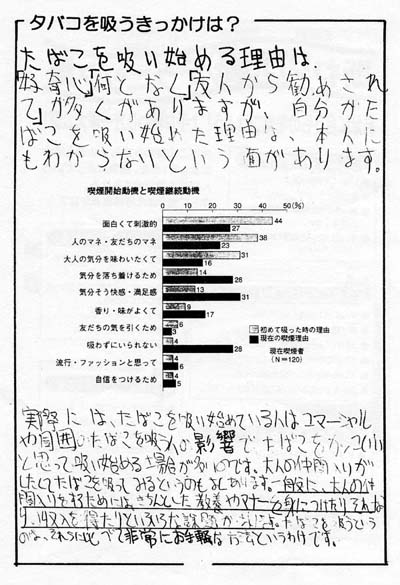 タバコを吸うきっかけは？
たばこを吸い始める理由は.
「好奇心」「何となく」「友人から勧めされ
て」が多くがありますが、自分がた
ばこを吸い始めた理由は、本人に
もわからないという面があります。
喫煙開始動機と喫煙継続動機
0 10 20 30 40 50(%)
面白くて刺激的 44 27
人のマネ・友だちのマネ 38 23
大人の気分を味わいたくて 31 16
気分を落ち着けるため 14 28
気分そう快感・満足感 13 31
香り・味がよくて 9 17
友だちの気を引くため 6 3
吸わずにいられない 4 28
流行・ファッションと思って 4 6
自信をつけるため 4 5
初めて吸った時の理由
現在の喫煙理由
現在喫煙者
(N＝120)
実際には、たばこを吸い始めている人はコマーシャル
や周囲のたばこを吸う人の影響でたばこをカッコいい
と思って吸い始める場合が多いのです。大人の仲間入りが
したくてたばこを吸ってみるというのもあります。一般に、大人の仲
間入りをするためには、きちんとした教養やマナーを身につけたり
収入を得たりといろいろな課題が たばこを吸うという
のは、それらにくらべて非常にお手軽 というわけです。